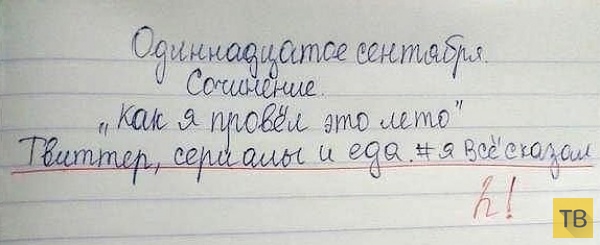 Одиннадцатое сентября.
Сочинение.
„Как я провёл это лето"
Твиттер, сериалы и еда. #я всё сказал
2!
ТВ